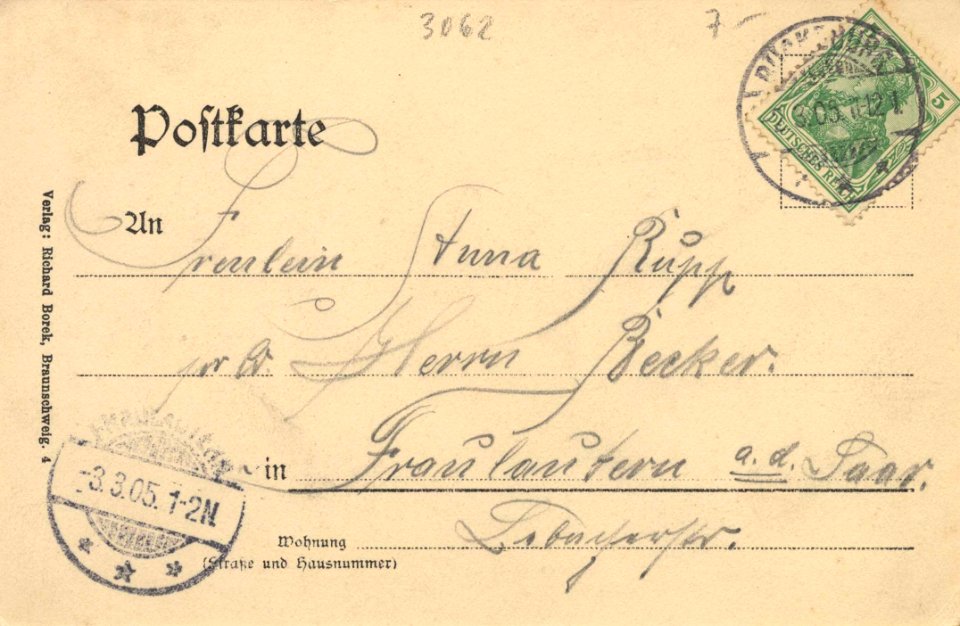 3062
7-
5
DEUTSCHES REICH
3.05. 11-12 V.
Postkarte
An Freulein Anna Rupp
pr Ad. Herrn Becker.
in Fraulautern a. d. Saar.
Lebacherstr.
Wohnung
(Straße und Hausnummer)
Verlag: Richard Borek, Braunschweig. 4
FRAULAUTERN
-3.3.05. 1-2N